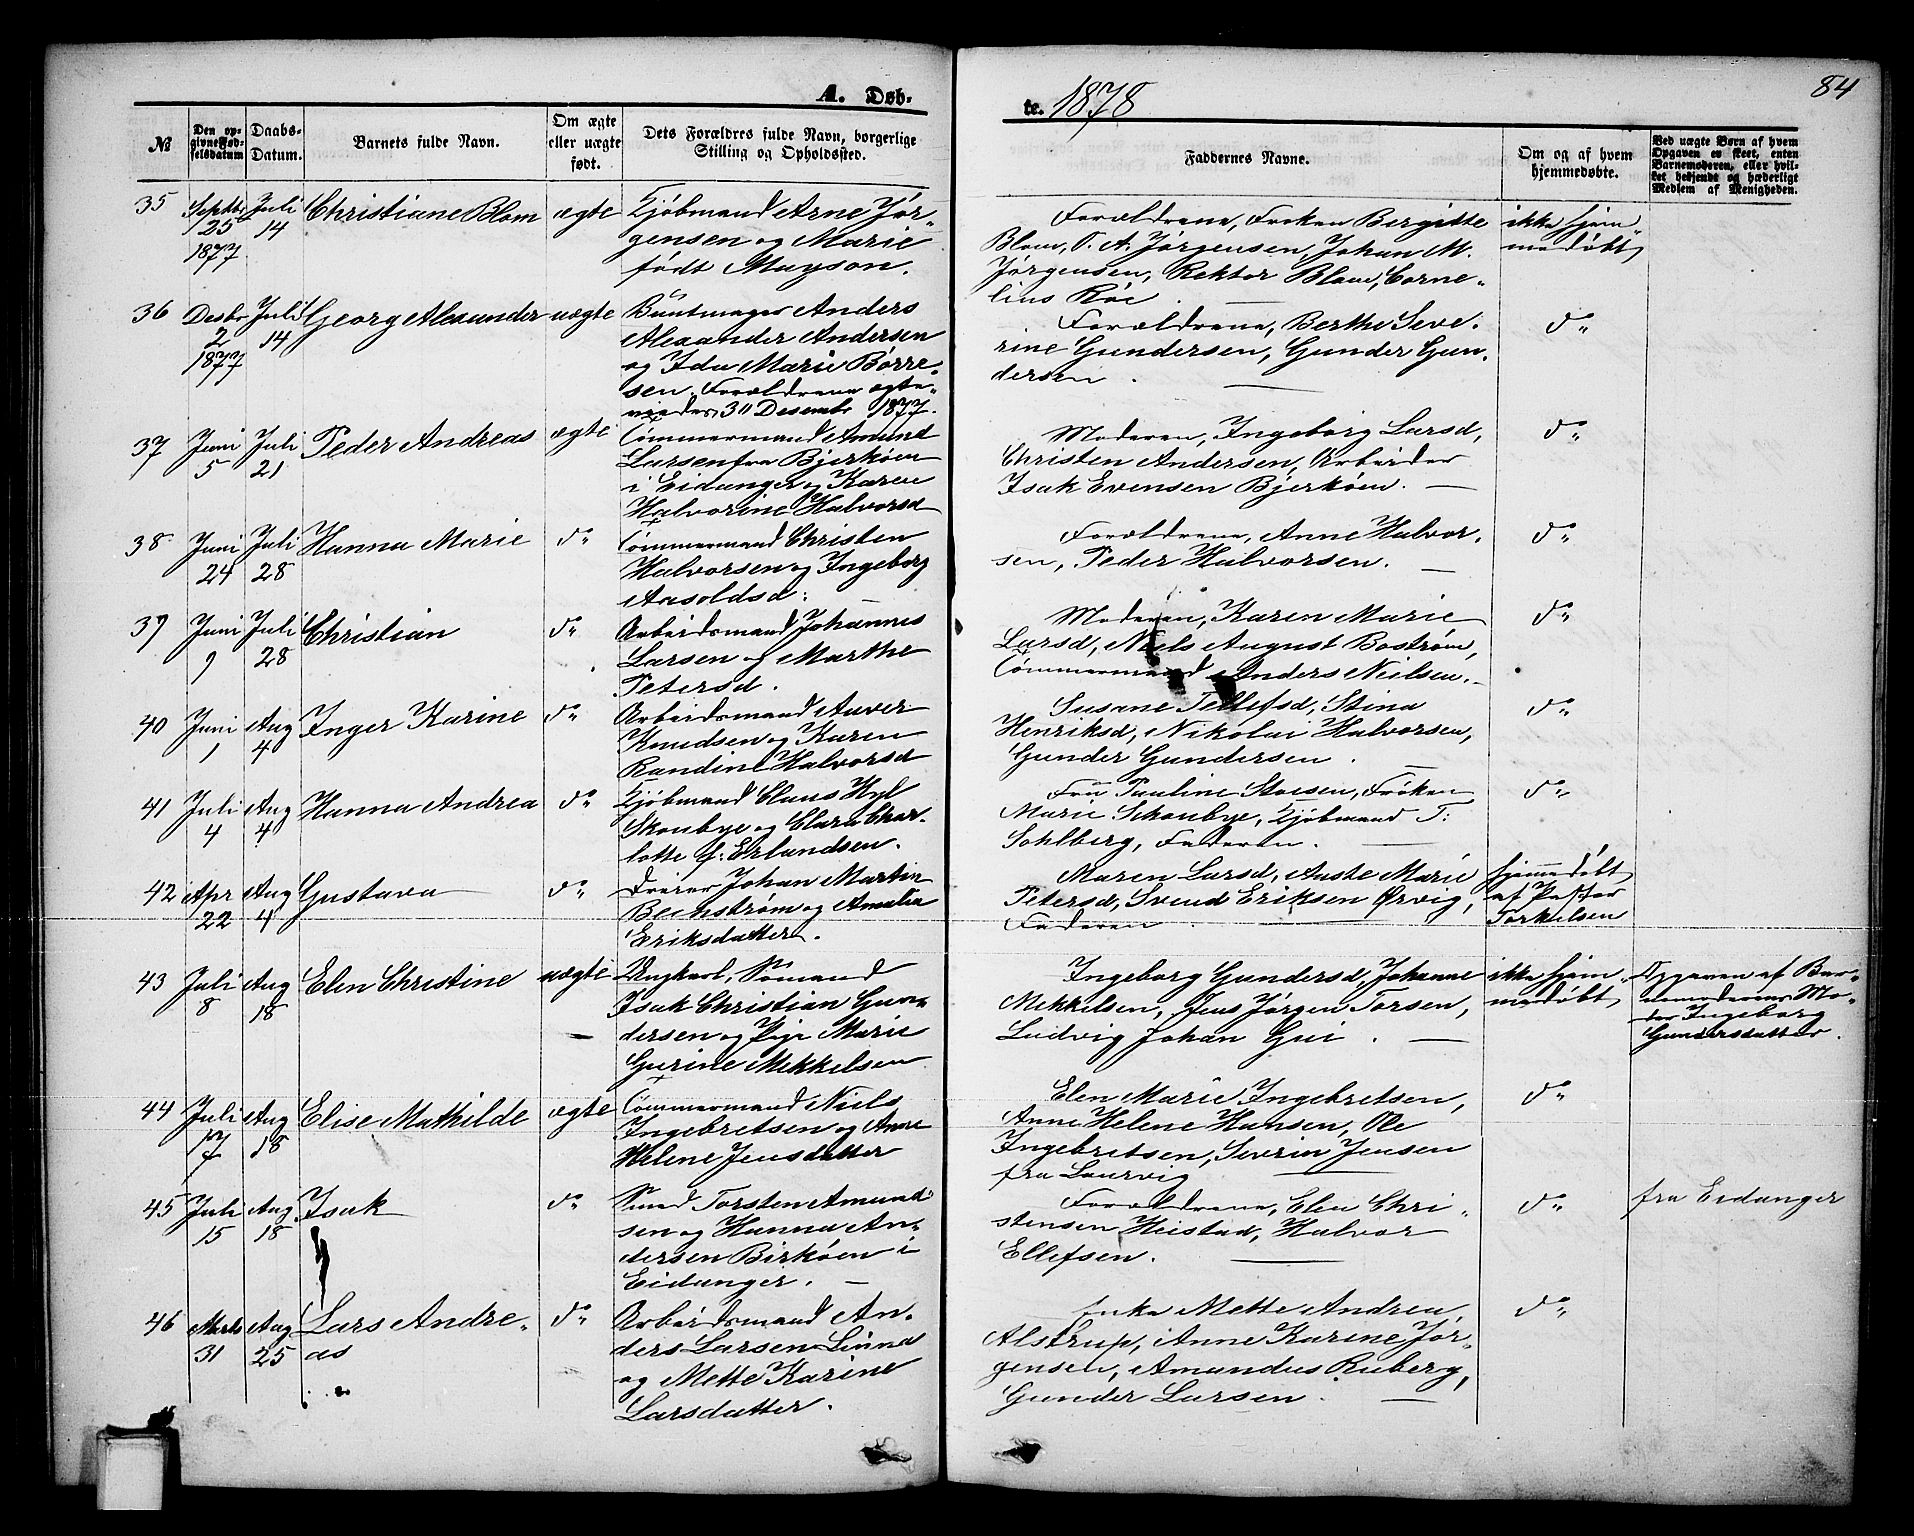 A. Døb-
te. 1878
84
№
Den op-
givne Fød-
selsdatum
Daabs-
Datum.
Barnets fulde Navn.
Om ægte
eller uægte
født.
Dets Forældres fulde Navn, borgerlige
Stilling og Opholdssted.
Faddernes Navne.
Om og af hvem
hjemmedøbte.
Ved uægte Børn af hvem
Opgaven er skeet, enten
Barnemoderen, eller hvil-
ket bekjendt og hæderligt
Medlem af Menigheden.
35 Septbr 25 1877 Juli 14 Christiane Blom ægte Kjøbmand Arne Jør-
gensen og Marie
født Mayson.
Forældrene, Frøken Birgitte
Blom, P. A. Jørgensen, Johan M.
Jørgensen, Rektor Blom, Corne-
lius Röe.
ikke hjem-
medøbt
36 Desbr 2 1877 Juli 14 Georg Alexander uægte Buntmager Anders
Alexander Andersen
og Ida Marie Börre-
sen. Forældrene ægte-
viedes 30 Desembr 1877.
Forældrene, Berthe Seve-
rine Gundersen, Gunder Gun-
dersen.
do
37 Juni 5 Juli 21 Peder Andreas ægte Tømmermand Amund
Larsen fra Bjerköen
i Eidanger og Karen
Halvorine Halvorsd
Moderen, Ingeborg Larsd,
Christen Andersen, Arbeider
Isak Evensen Bjerköen.
do
38 Juni 24 Juli 28 Hanna Marie do Tømmermand Christen
Halvorsen og Ingeborg
Aasoldsd.
Forældrene, Anne Halvor-
sen, Peder Halvorsen.
do
39 Juni 9 Juli 28 Christian do Arbeidsmand Johannes
Larsen og Marthe
Petersd.
Moderen, Karen Marie
Larsd, Niels August Boström,
Tømmermand Anders Nielsen.
do
40 Juni 1 Aug 4 Inger Karine do Arbeidsmand Anver
Knudsen og Karen
Randine Halvorsd
Susane Tellefsd, Stina
Henriksd, Nikolai Halvorsen,
Gunder Gundersen.
do
41 Juli 4 Aug 4 Hanna Andrea do Kjøbmand Claus Hyl
Skonbye og Clara Char-
lotte f. Erlandsen.
Fru Pauline Stoesen, Frøken
Marie Schonbye, Kjøbmand T.
Sohlberg, Faderen.
do
42 Apr 22 Aug 4 Gustava do Dreier Johan Martin
Bechstrøm og Amalia
Eriksdatter.
Maren Larsd, Aaste Marie
Petersd, Svend Eriksen Ørvig,
Faderen.
hjemmedøbt
af Pastor
Torkelsen
43 Juli 8 Aug 18 Elen Christine uægte Ungkarl, Sømand
Isak Christian Gun-
dersen og Pige Marie
Gurine Mekkelsen.
Ingeborg Gundersd, Johanne
Mekkelsen, Jens Jørgen Torsen,
Ludvig Johan Gui.
ikke hjem-
medøbt
Opgaven af Bar-
nemoderens Mo-
der Ingeborg
Gundersdatter.
44 Juli 17 Aug 18 Elise Mathilde ægte Tømmermand Niels
Ingebretsen og Anne
Helene Jensdatter
Elen Marie Ingebretsen,
Anne Helene Hansen, Ole
Ingebretsen, Severin Jensen
fra Laurvig
do
45 Juli 15 Aug 18 Isak do Smed Torsten Amund-
sen og Hanna An-
dersen Birköen i
Eidanger.
Forældrene, Elen Chri-
stensen Heistad, Halvor
Ellefsen.
do
fra Eidanger
46 Marts 31 Aug 25 Lars Andre-
as do Arbeidsmand An-
ders Larsen Linnes
og Mette Karine
Larsdatter.
Enke Mette Andrea
Alstrup, Anne Karine Jør-
gensen, Amandus Ruberg,
Gunder Larsen.
do